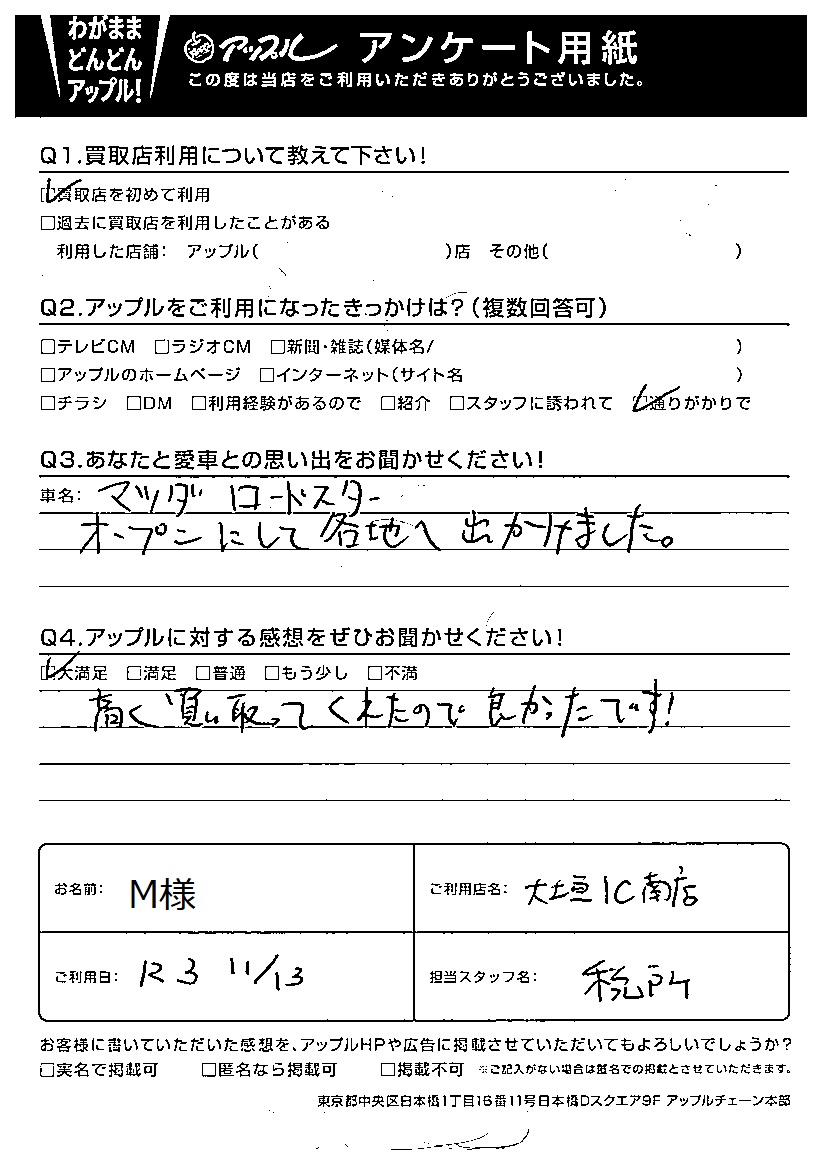 わがまま
どんどん
アップル!
アップル アンケート用紙
この度は当店をご利用いただきありがとうございました。
Q1.買取店利用について教えて下さい!
☑買取店を初めて利用
□過去に買取店を利用したことがある
利用した店舗: アップル( )店 その他( )
Q2.アップルをご利用になったきっかけは?(複数回答可)
□テレビCM □ラジオCM □新聞・雑誌(媒体名/ )
□アップルのホームページ □インターネット(サイト名 )
□チラシ □DM □利用経験があるので □紹介 □スタッフに誘われて ☑通りがかりで
Q3.あなたと愛車との思い出をお聞かせください!
車名: マツダ ロードスター
オープンにして各地へ出かけました。
Q4.アップルに対する感想をぜひお聞かせください!
☑大満足 □満足 □普通 □もう少し □不満
高く買い取ってくれたので良かったです!
お名前: M様
ご利用店名: 大垣IC南店
ご利用日: R3 11/13
担当スタッフ名: 税所
お客様に書いていただいた感想を、アップルHPや広告に掲載させていただいてもよろしいでしょうか?
□実名で掲載可 □匿名なら掲載可 □掲載不可 ※ご記入がない場合は匿名での掲載とさせていただきます。
東京都中央区日本橋1丁目16番11号日本橋Dスクエア9F アップルチェーン本部